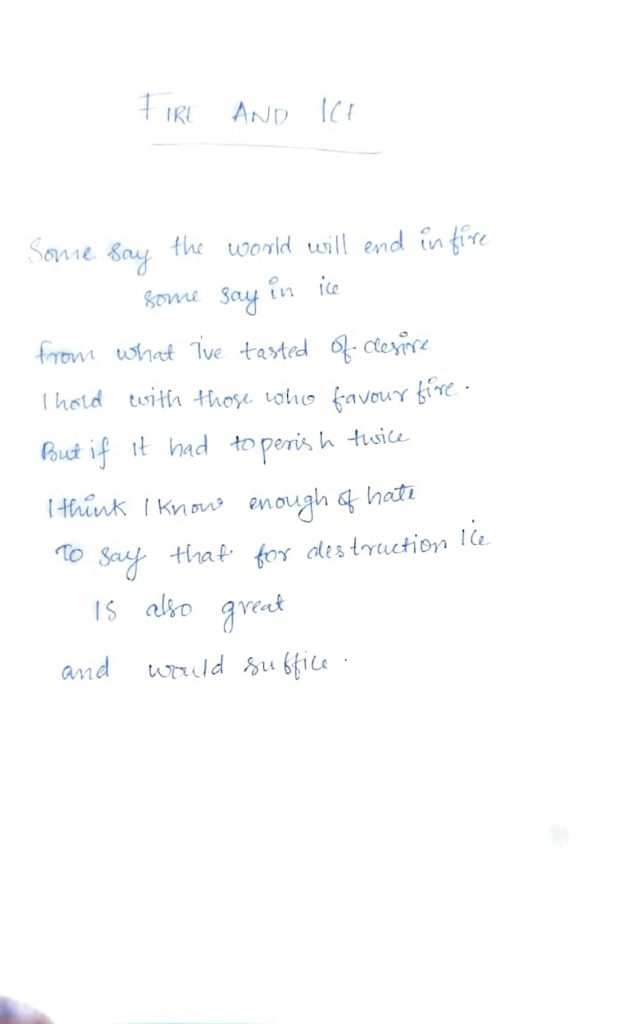 FIRE AND ICE
Some say the world will end in fire
some say in ice
from what I've tasted of desire
I hold with those who favour fire.
But if it had to perish twice
I think I know enough of hate
To say that for destruction ice
Is also great
and would suffice.